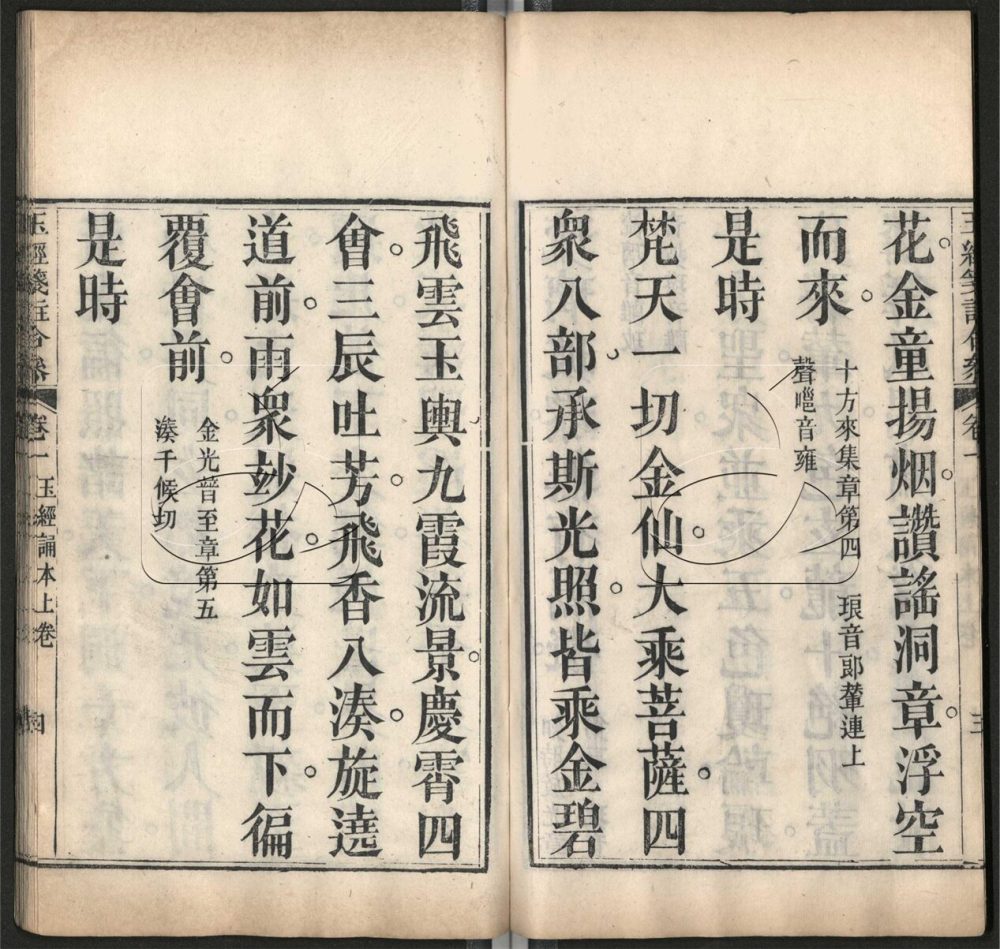 花。金童揚烟。讚謠洞章。浮空
而來。
十方來集章第四 琅音郎輦連上
聲嗈音雍
是時
梵天一切金仙。大乘菩薩。四
衆八部。承斯光照。皆乘金碧
飛雲玉輿。九霞流景。慶霄四
會。三辰吐芳。飛香八湊。旋遶
道前。雨衆玅花。如雲而下。徧
覆會前。
金光普至章第五
湊千候切
是時
玉經箋註合叅 卷一 玉經誦本上卷 四